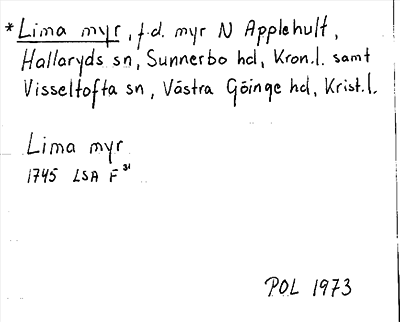 *Lima myr, f.d. myr N Applehult,
Hallaryds sn, Sunnerbo hd, Kron.l. samt
Visseltofta sn, Västra Göinge hd, Krist.l.
Lima myr
1745 LSA F³¹
POL 1973